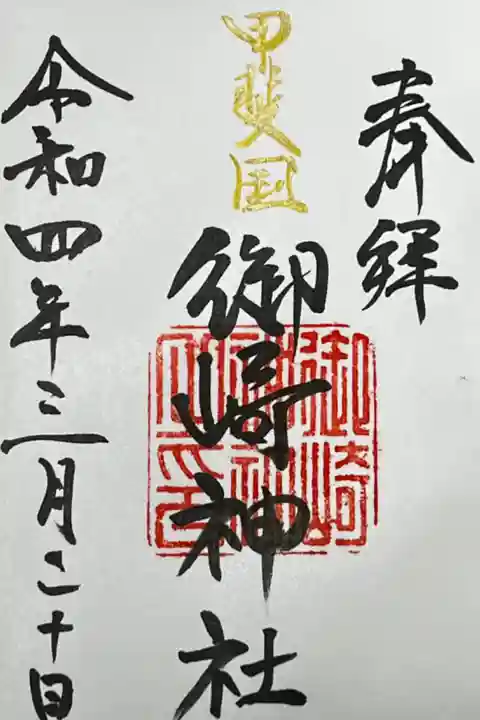 奉拜
甲斐国
御崎神社
御崎
令和四年三月二十日